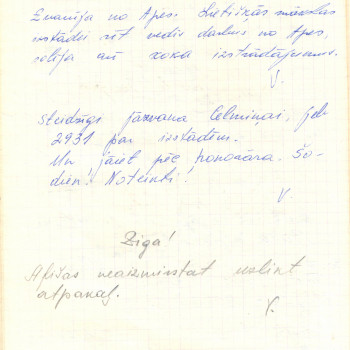 Zvanīja no Apes. Lietišķās mākslas
izstādei rīt vedīs darbus no Apes,
selīja arī koka izstrādājumus.
V.
Steidzīgi jāzvana Celmiņai, jeb
2931 par izstādēm.
Un jāiet pēc honorāra. Šo-
dien! Noteikti!
V.
Ziga!
Afišas neaizmirstat uzlikt
atpakaļ.
V.